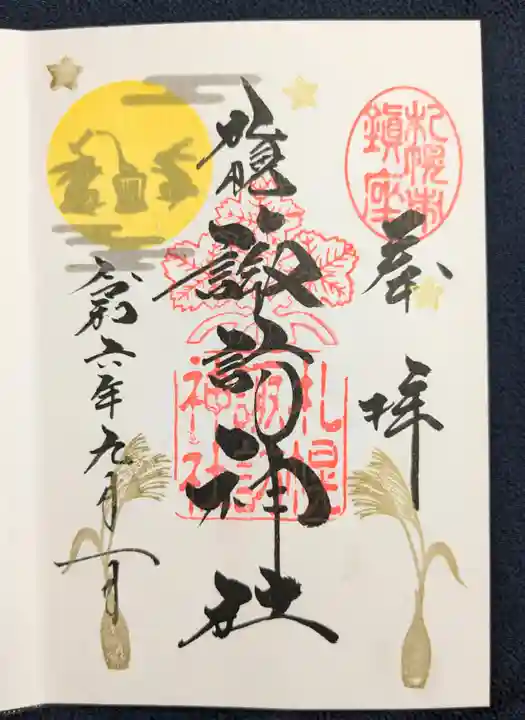 札幌市
鎭座
奉拝
諏訪神社
札幌
諏訪
神社
令和六年九月一日